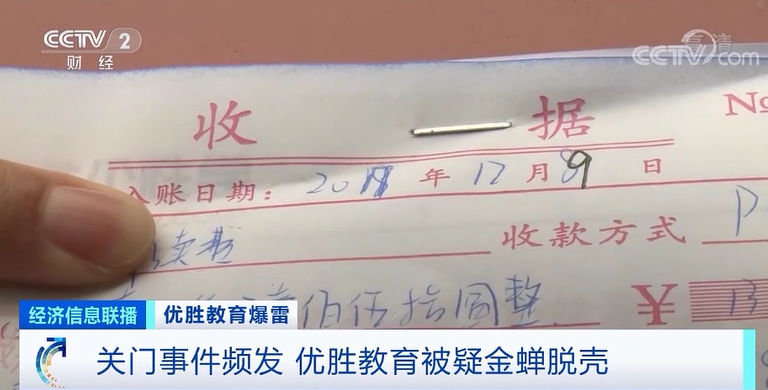 CCTV 2
财经
高清
CCTV.com
收据
No
入账日期: 20 年 12 月 9 日
收款方式 P
佰伍拾圆整 ¥ 13
经济信息联播 优胜教育爆雷
关门事件频发 优胜教育被疑金蝉脱壳